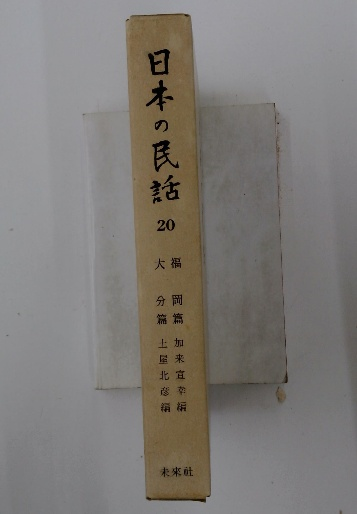 日本の民話
20
福岡篇 加来宣幸編
大分篇 土屋北彦編
未来社